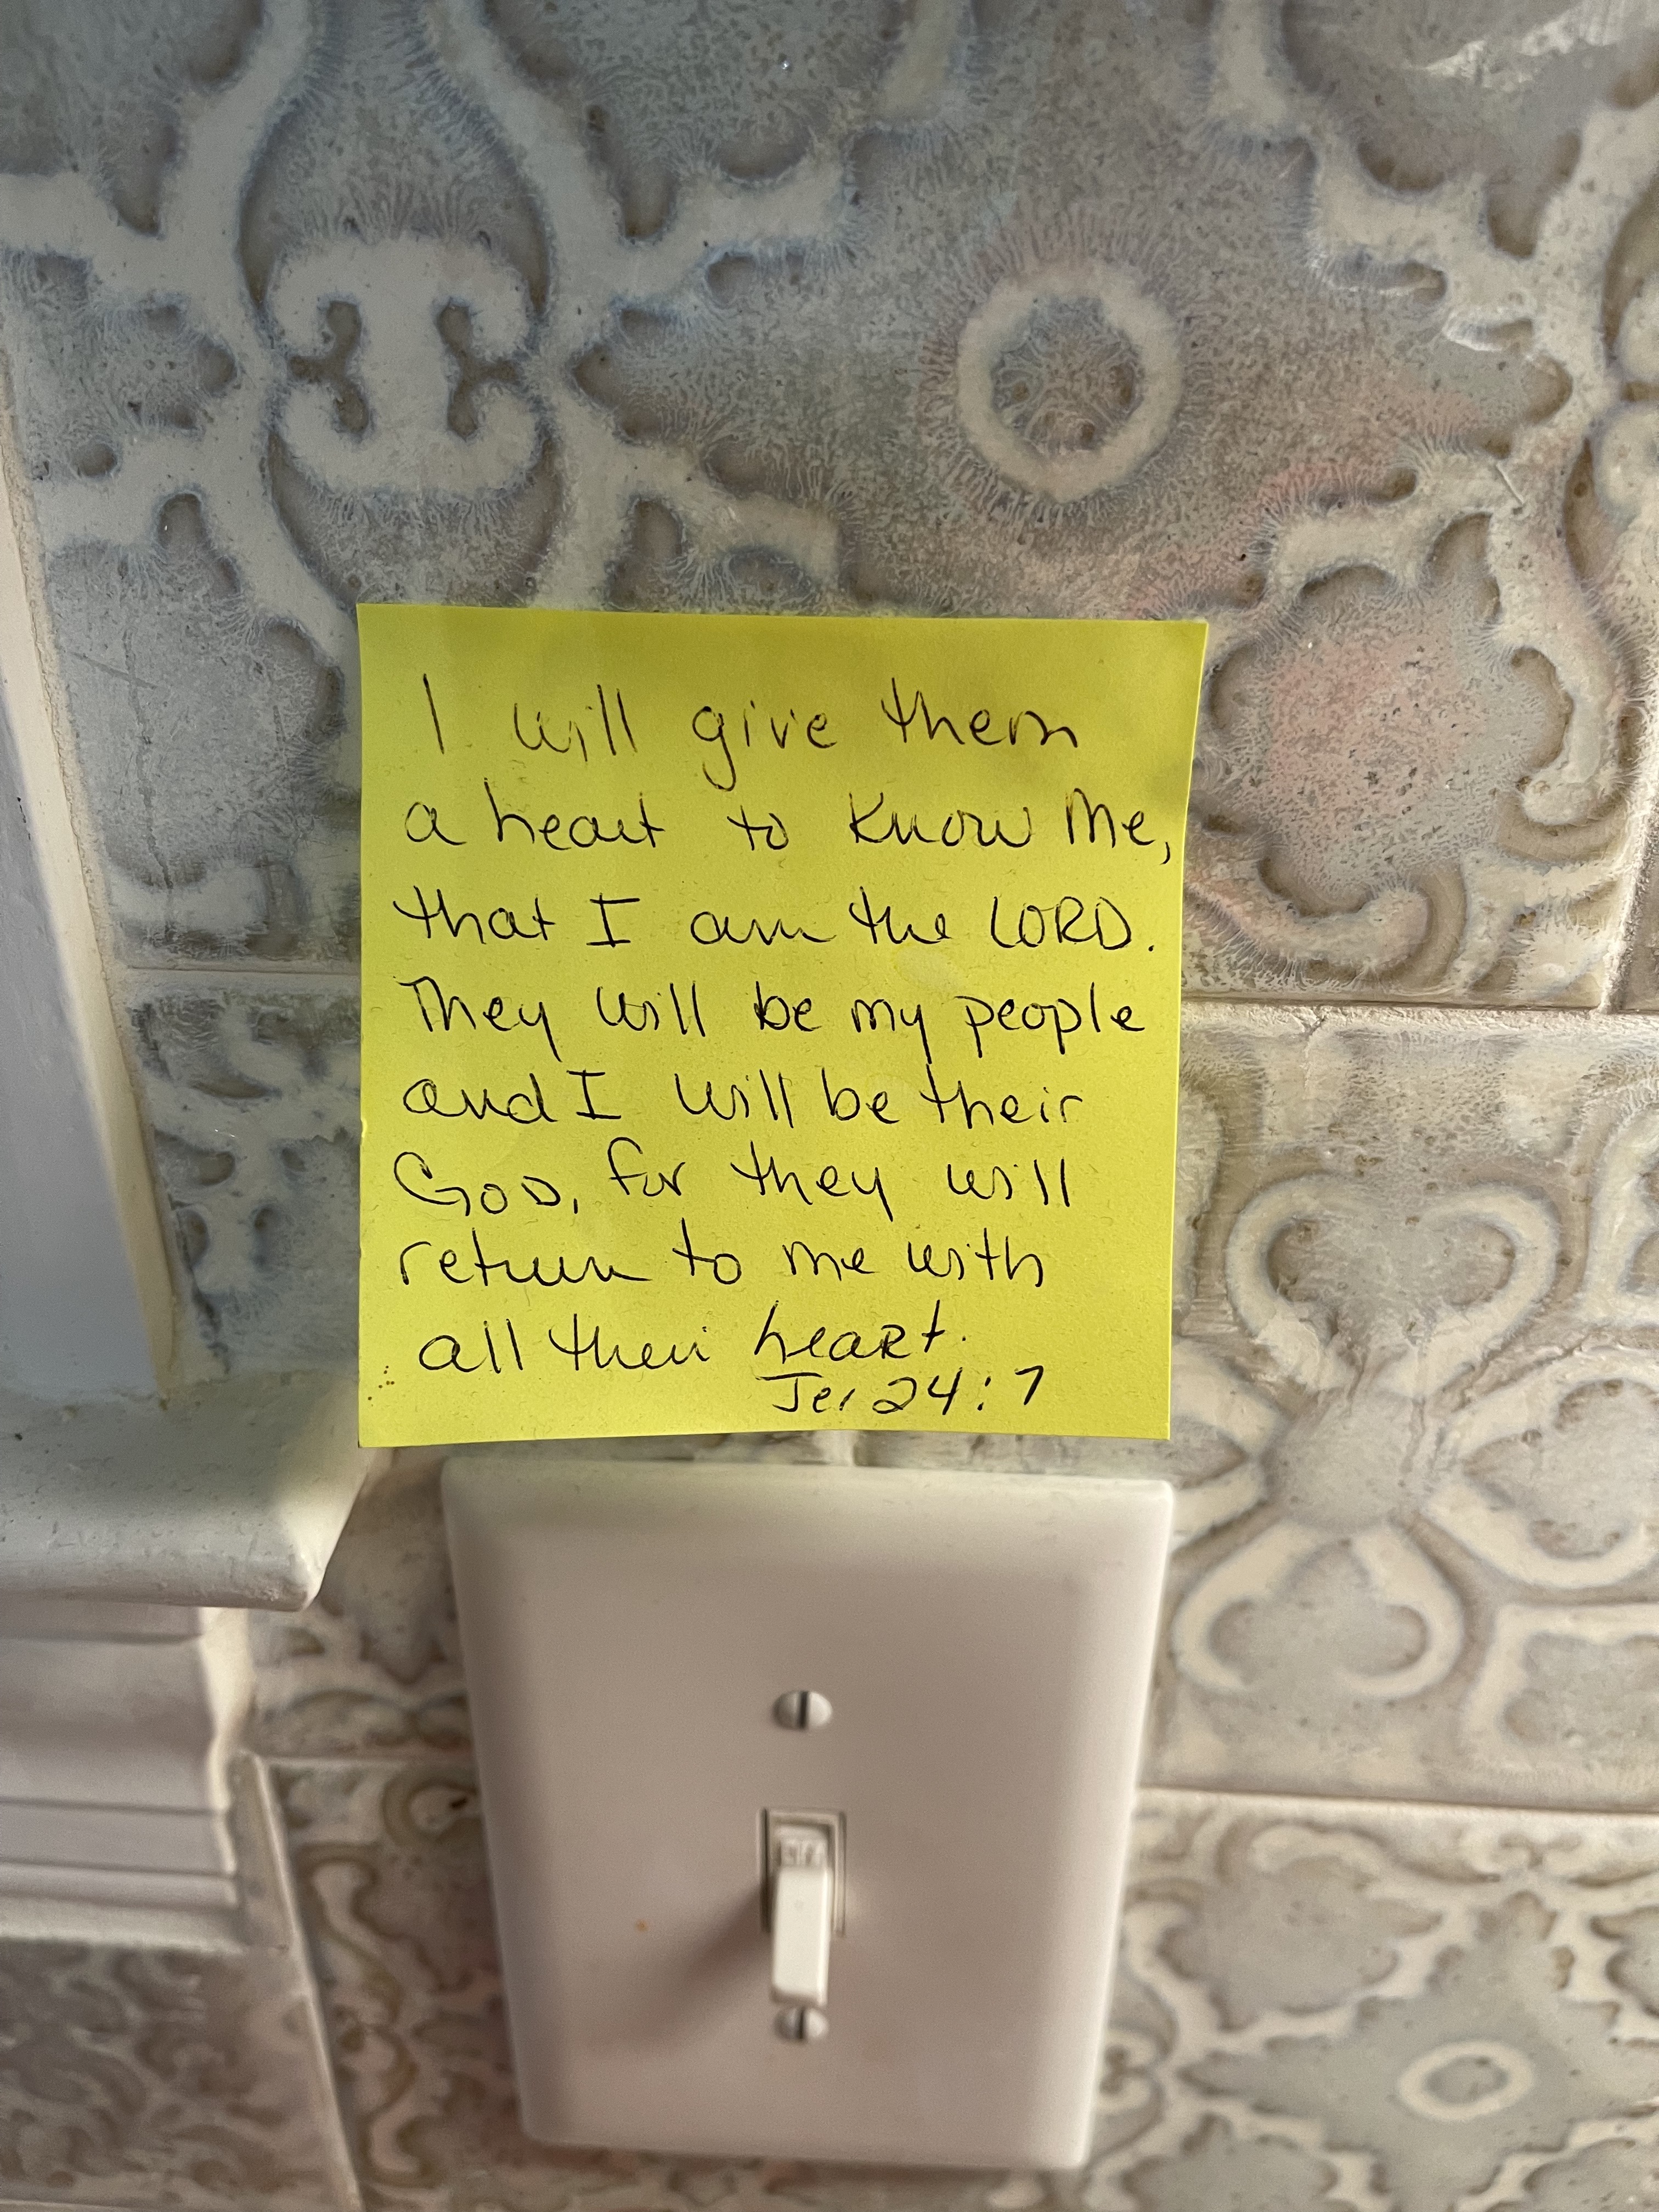 I will give them
a heart to know Me,
that I am the LORD.
They will be my people
and I will be their
GOD, for they will
return to me with
all their heart.
Jer 24:7